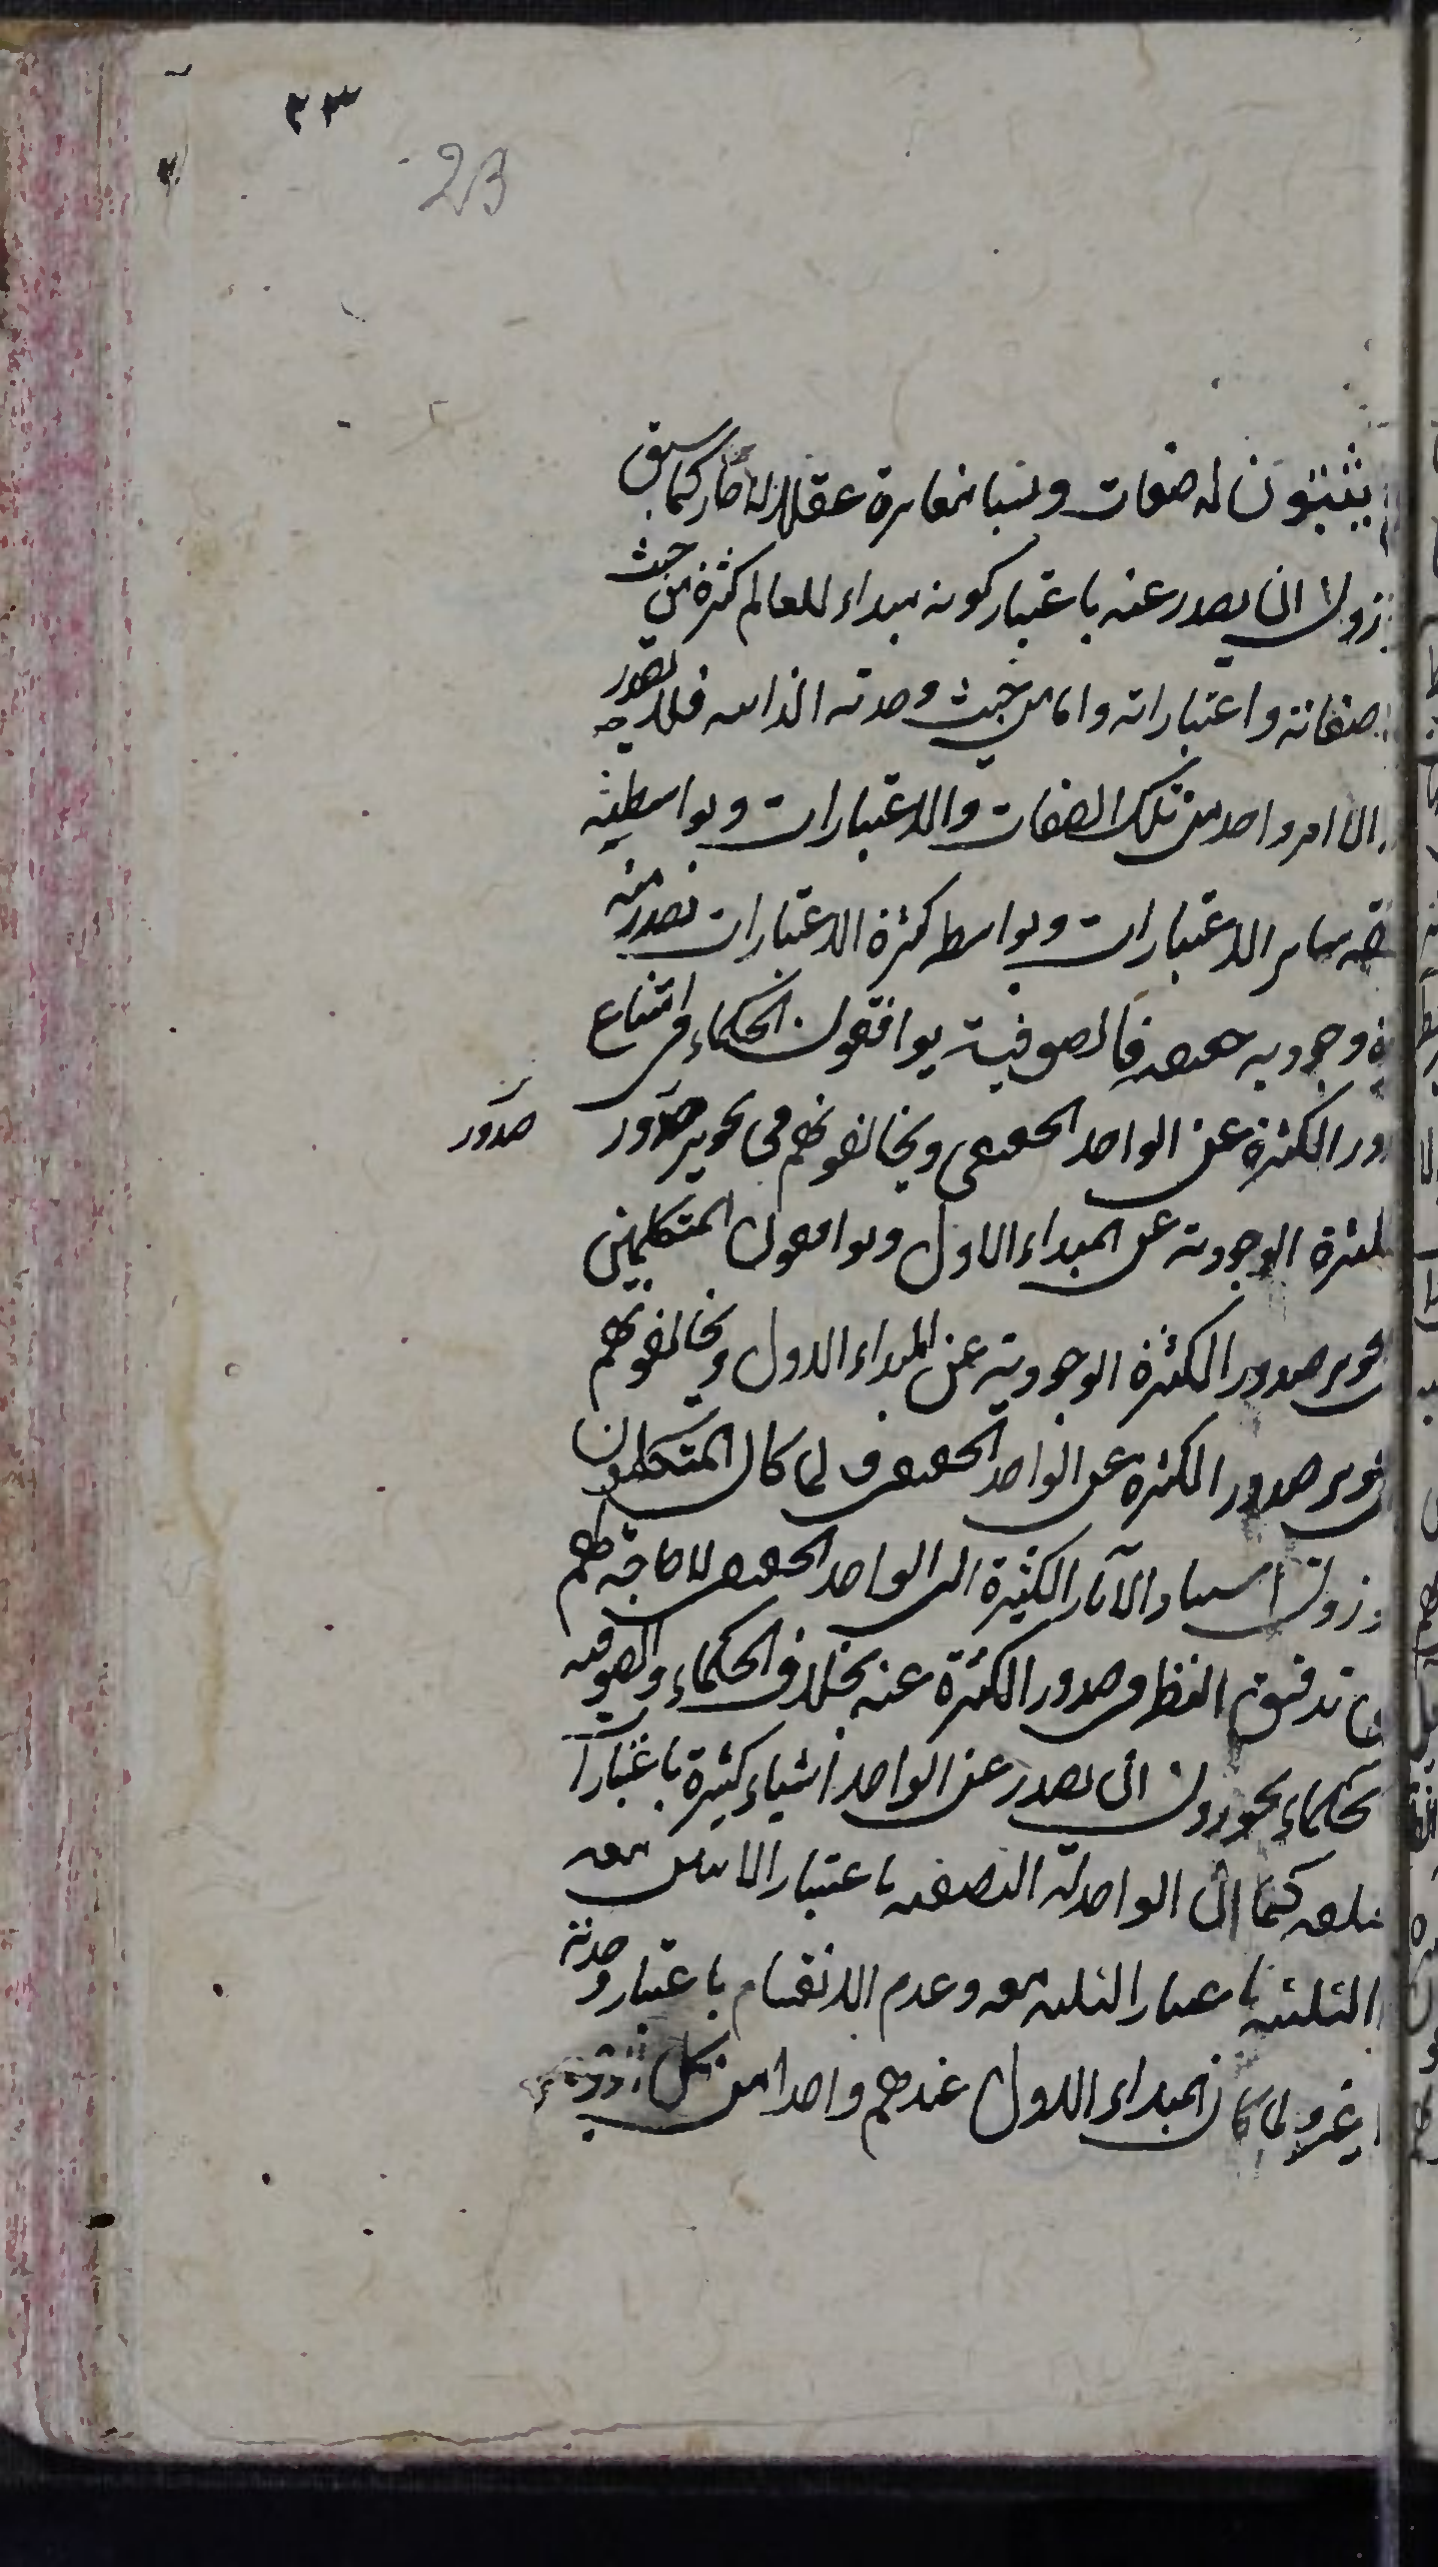 ٢٣
23
يثبتون له صفات ونسبا مغايرة عقلا لا خارجا كما سبق
ان يصدر عنه باعتبار كونه مبداء للعالم كثرة من حيث
صفاته واعتباراته واما من حيث وحدته الذاتيه فلا يصدر
الا امر واحد من تلك الصفات والاعتبارات وبواسطته
سائر الاعتبارات وبواسطه كثرة الاعتبارات تصدر منه
وجوديه حقيقيه فالصوفية يوافقون الحكماء في امتناع
الكثرة عن الواحد الحقيقي ويخالفونهم في تجويز صدور
صدور
الكثرة الوجودية عن المبداء الاول ويوافقون المتكلمين
صدور الكثرة الوجودية عن المبداء الاول ويخالفونهم
صدور الكثرة عن الواحد الحقيقي ولما كان المتكلمون
اسناد الآثار الكثيرة الى الواحد الحقيقي لا حاجة لهم
تدقيق النظر في صدور الكثرة عنه بخلاف الحكماء والصوفيه
يجوزون ان يصدر عن الواحد اشياء كثيرة باعتبارا
كما ان الواحد له النصفيه باعتبار الاثنين معه
الثلثيه باعتبار الثلثه معه وعدم الانقسام باعتبار وحدته
ولما كان المبداء الاول عندهم واحدا من كل